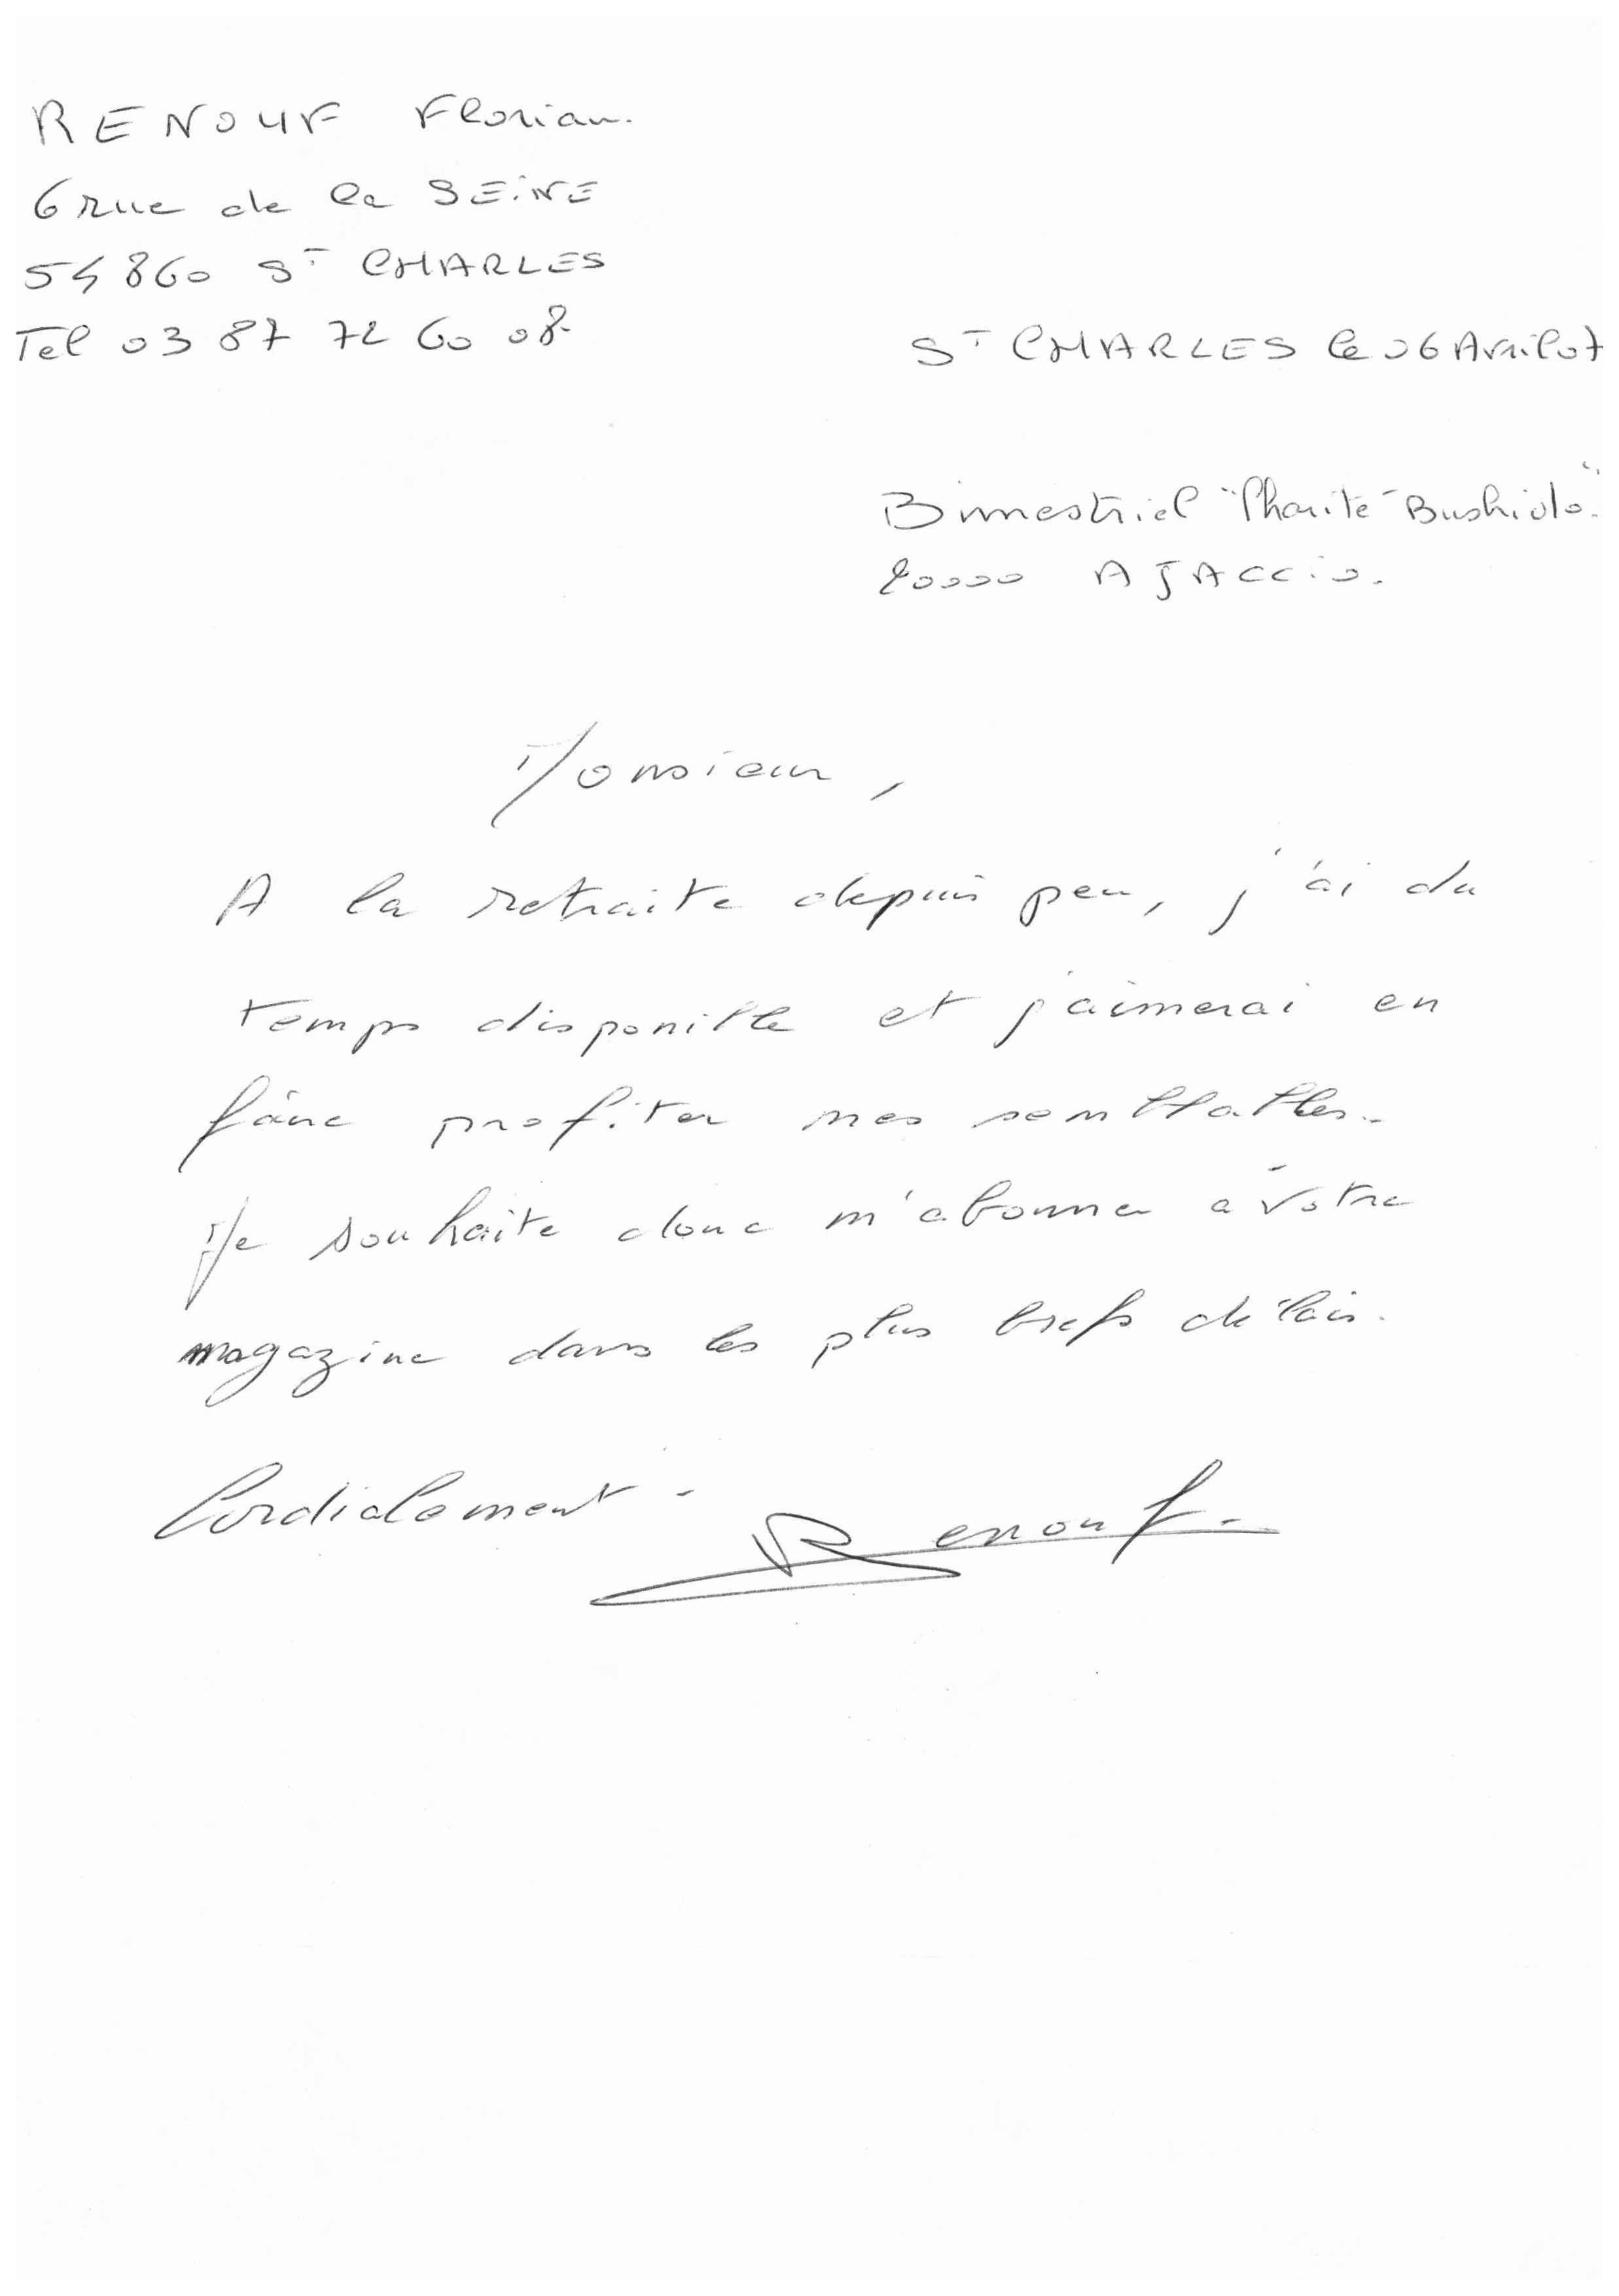 RENOUF Florian.
6 rue de la SEINE
54860 ST CHARLES
Tel 03 87 72 60 08
ST CHARLES le 06 Avril 07
Bimestriel "Charité-Bushido".
20000 AJACCIO.
Monsieur,
A la retraite depuis peu, j'ai du
temps disponible et j'aimerai en
faire profiter mes semblables.
Je souhaite donc m'abonner à votre
magazine dans les plus brefs délais.
Cordialement.
Renouf.